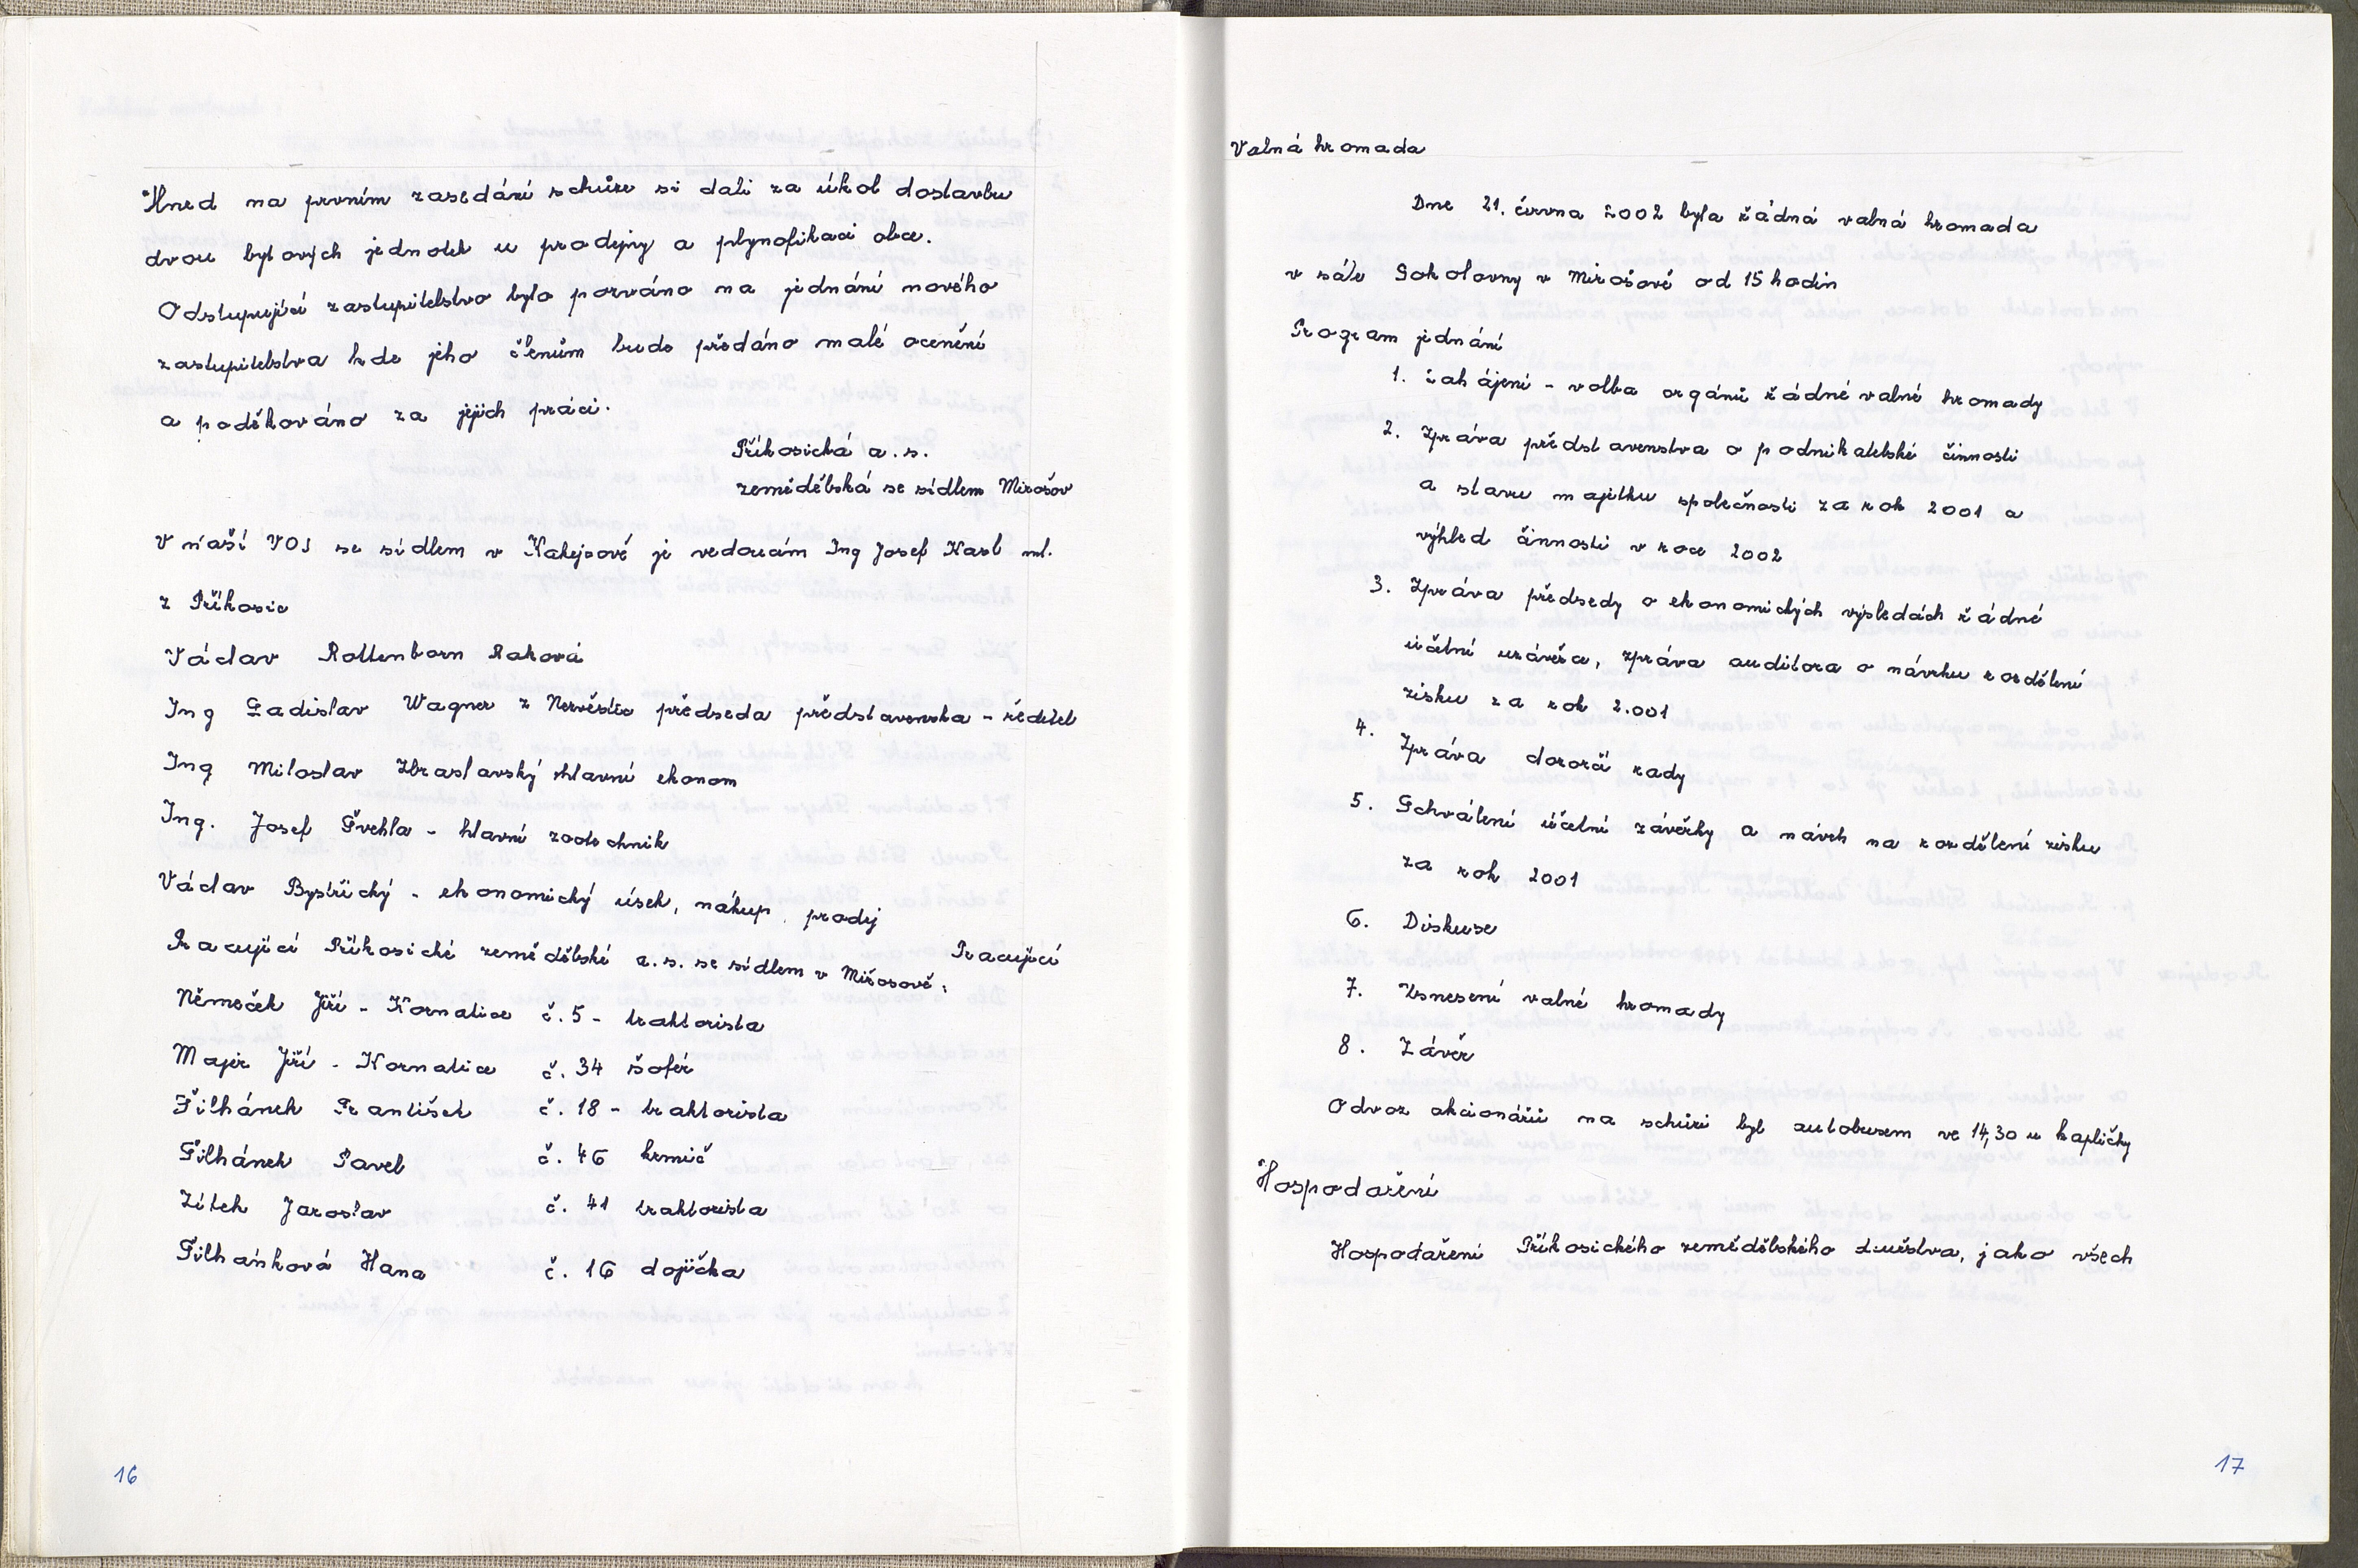 Hned na prvním zasedání schůze si dali za úkol dostavbu
dvou bytových jednotek u prodejny a plynofikaci obce.
Odstupující zastupitelstvo bylo pozváno na jednání nového
zastupitelstva kde jeho členům bude předáno malé ocenění
a poděkováno za jejich práci.
Příkosická a.s.
zemědělská se sídlem Mirošov
V naší VOS se sídlem v Kakejcově je vedoucím Ing Josef Karl ml.
z Příkosic
Václav Rottenborn Raková
Ing Ladislav Wagner z Nezvěstic předseda představenstva - ředitel
Ing Miloslav Zbraslavský hlavní ekonom
Ing. Josef Švehla - hlavní zootechnik
Václav Bystřický - ekonomický úsek, nákup, prodej
Pracující
Pracující Příkosické zemědělské a.s. se sídlem v Mišosově:
Němeček Jiří - Kornatice č. 5 - traktorista
Majer Jiří - Kornatice č. 34 šofér
Šilhánek František č. 18 - traktorista
Šilhánek Pavel č. 46 krmič
Zítek Jaroslav č. 41 traktorista
Šilhánková Hana č. 16 dojička
16
Valná hromada
Dne 21. června 2002 byla řádná valná hromada
v sále Sokolovny v Mirošově od 15 hodin
Program jednání
1. Zahájení - volba orgánů řádné valné hromady
2. Zpráva představenstva o podnikatelské činnosti
a stavu majetku společnosti za rok 2001 a
výhled činnosti v roce 2002
3. Zpráva předsedy o ekonomických výsledách řádné
účetní uzávěrce, zpráva auditora o návrhu rozdělení
zisku za rok 2.001
4. Zpráva dozorčí rady
5. Schválení účetní závěrky a návrh na rozdělení zisku
za rok 2001
6. Diskuse
7. Usnesení valné hromady
8. Závěr
Odvoz akcionářů na schůzi byl autobusem ve 14,30 u kapličky
Hospodaření
Hospodaření Příkosického zemědělského družstva, jako všech
17